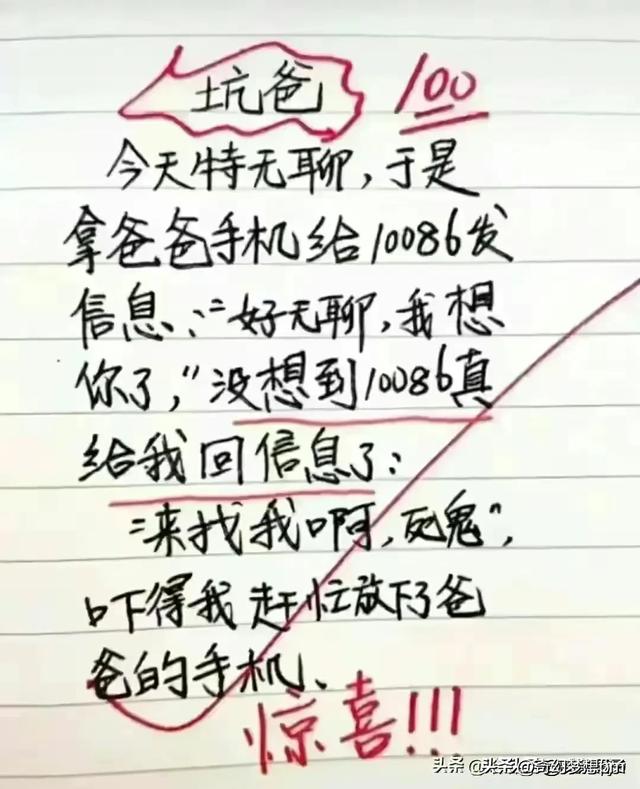 坑爸 100
今天特无聊,于是
拿爸爸手机给10086发
信息:"好无聊,我想
你了,"没想到10086真
给我回信息了:
"来找我啊,死鬼",
吓得我赶忙放下了爸
爸的手机、
惊喜!!!